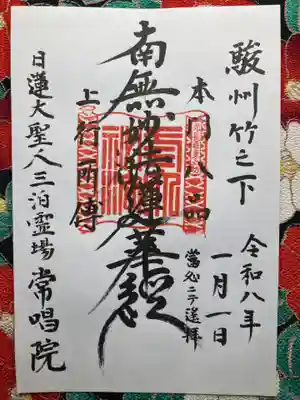 駿州竹之下
令和八年
一月一日
本門八品
當処ニテ遙拝
南無妙法蓮華経
上行所傳
日蓮大聖人三泊霊場
常唱院